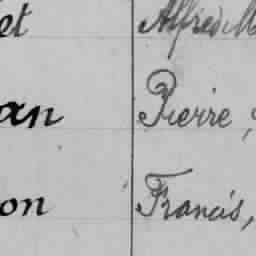 et Alfred M
an Pierre,
on Francis,